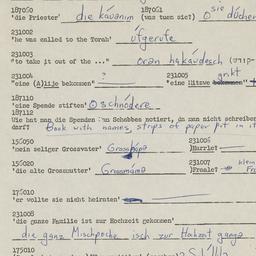 187050 187051
'die Priester' die káuanim (was tuen sie?) O sie düchen
231002
'he was called to the Torah' ufgerufe
231003
"to take it out of the ..." oran hakáudesch
231004 231005
"eine (A)lije bekommen" ? "eine Mitzwe bekommen"
187110
'eine Spende stiften' O schnódere
187112
Wie hat man die Spenden am Schabbes notiert, da man nicht schreiben
darf? Book with names, strips of paper put in it
155050 231006
'mein seliger Grossvater' Grosspápa [Harrle]
155020 231007
'die alte Grossmutter' Grossmáma [Fraale] klein
175010
'er wollte sie nicht heiraten'
231008
'die ganze Familie ist zur Hochzeit gekommen'
die ganz Mischpoche isch zur Hochzet gange
175010